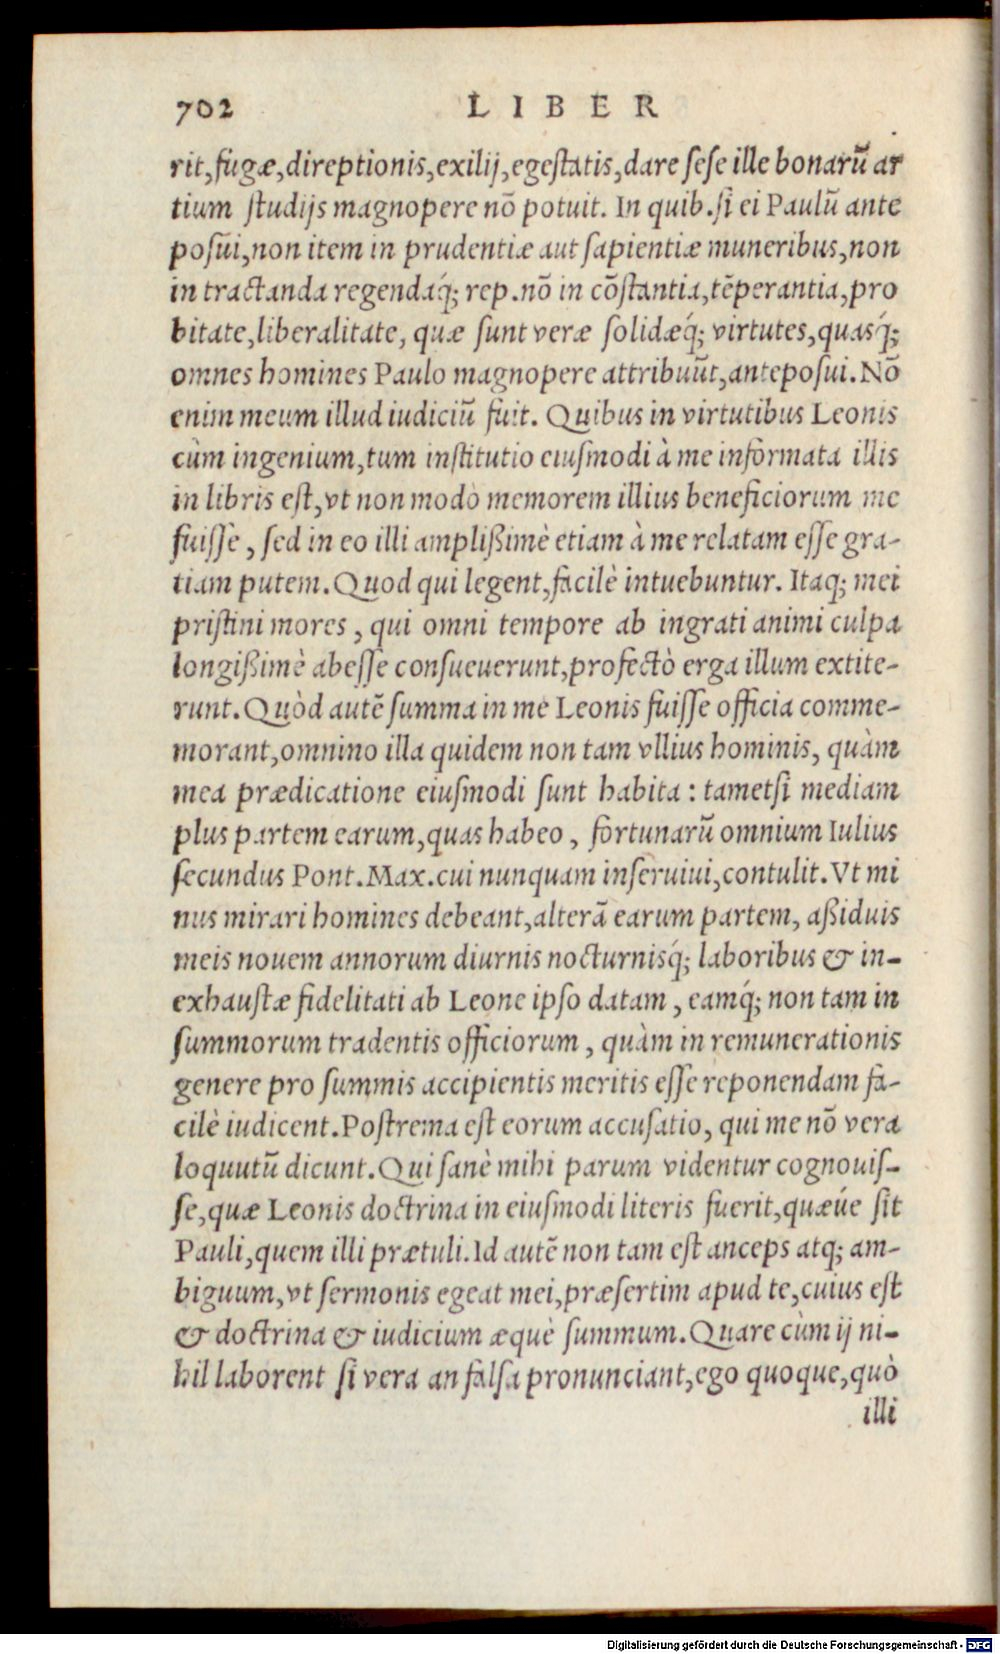 702 LIBER
rit, fugæ, direptionis, exilij, egeſtatis, dare ſeſe ille bonarū ar
tium ſtudijs magnopere nō potuit. In quib. ſi ei Paulū ante
poſui, non item in prudentiæ aut ſapientiæ muneribus, non
in tractanda regendaq́; rep. nō in cōſtantia, tēperantia, pro
bitate, liberalitate, quæ ſunt veræ ſolidæq́; virtutes, quasq́;
omnes homines Paulo magnopere attribuūt, antepoſui. Nō
enim meum illud iudiciū fuit. Quibus in virtutibus Leonis
cùm ingenium, tum inſtitutio eiuſmodi à me informata illis
in libris eſt, vt non modò memorem illius beneficiorum me
fuiſſe, ſed in eo illi ampliſſimè etiam à me relatam eſſe gra-
tiam putem. Quod qui legent, facilè intuebuntur. Itaq; mei
priſtini mores, qui omni tempore ab ingrati animi culpa
longißimè abeſſe conſueuerunt, profectò erga illum extite-
runt. Quòd autē ſumma in me Leonis fuiſſe officia comme-
morant, omnino illa quidem non tam vllius hominis, quàm
mea prædicatione eiuſmodi ſunt habita: tametſi mediam
plus partem earum, quas habeo, fortunarū omnium Iulius
ſecundus Pont. Max. cui nunquam inſeruiui, contulit. Vt mi
nus mirari homines debeant, alterā earum partem, aßiduis
meis nouem annorum diurnis nocturnisq́; laboribus & in-
exhauſtæ fidelitati ab Leone ipſo datam, eamq́; non tam in
ſummorum tradentis officiorum, quàm in remunerationis
genere pro ſummis accipientis meritis eſſe reponendam fa-
cilè iudicent. Poſtrema eſt eorum accuſatio, qui me nō vera
loquutū dicunt. Qui ſanè mihi parum videntur cognouiſ-
ſe, quæ Leonis doctrina in eiuſmodi literis fuerit, quæúe ſit
Pauli, quem illi prætuli. Id autē non tam eſt anceps atq; am-
biguum, vt ſermonis egeat mei, præſertim apud te, cuius eſt
& doctrina & iudicium æquè ſummum. Quare cùm ij ni-
hil laborent ſi vera an falſa pronunciant, ego quoque, quò
illi
Digitalisierung gefördert durch die Deutsche Forschungsgemeinschaft - DFG